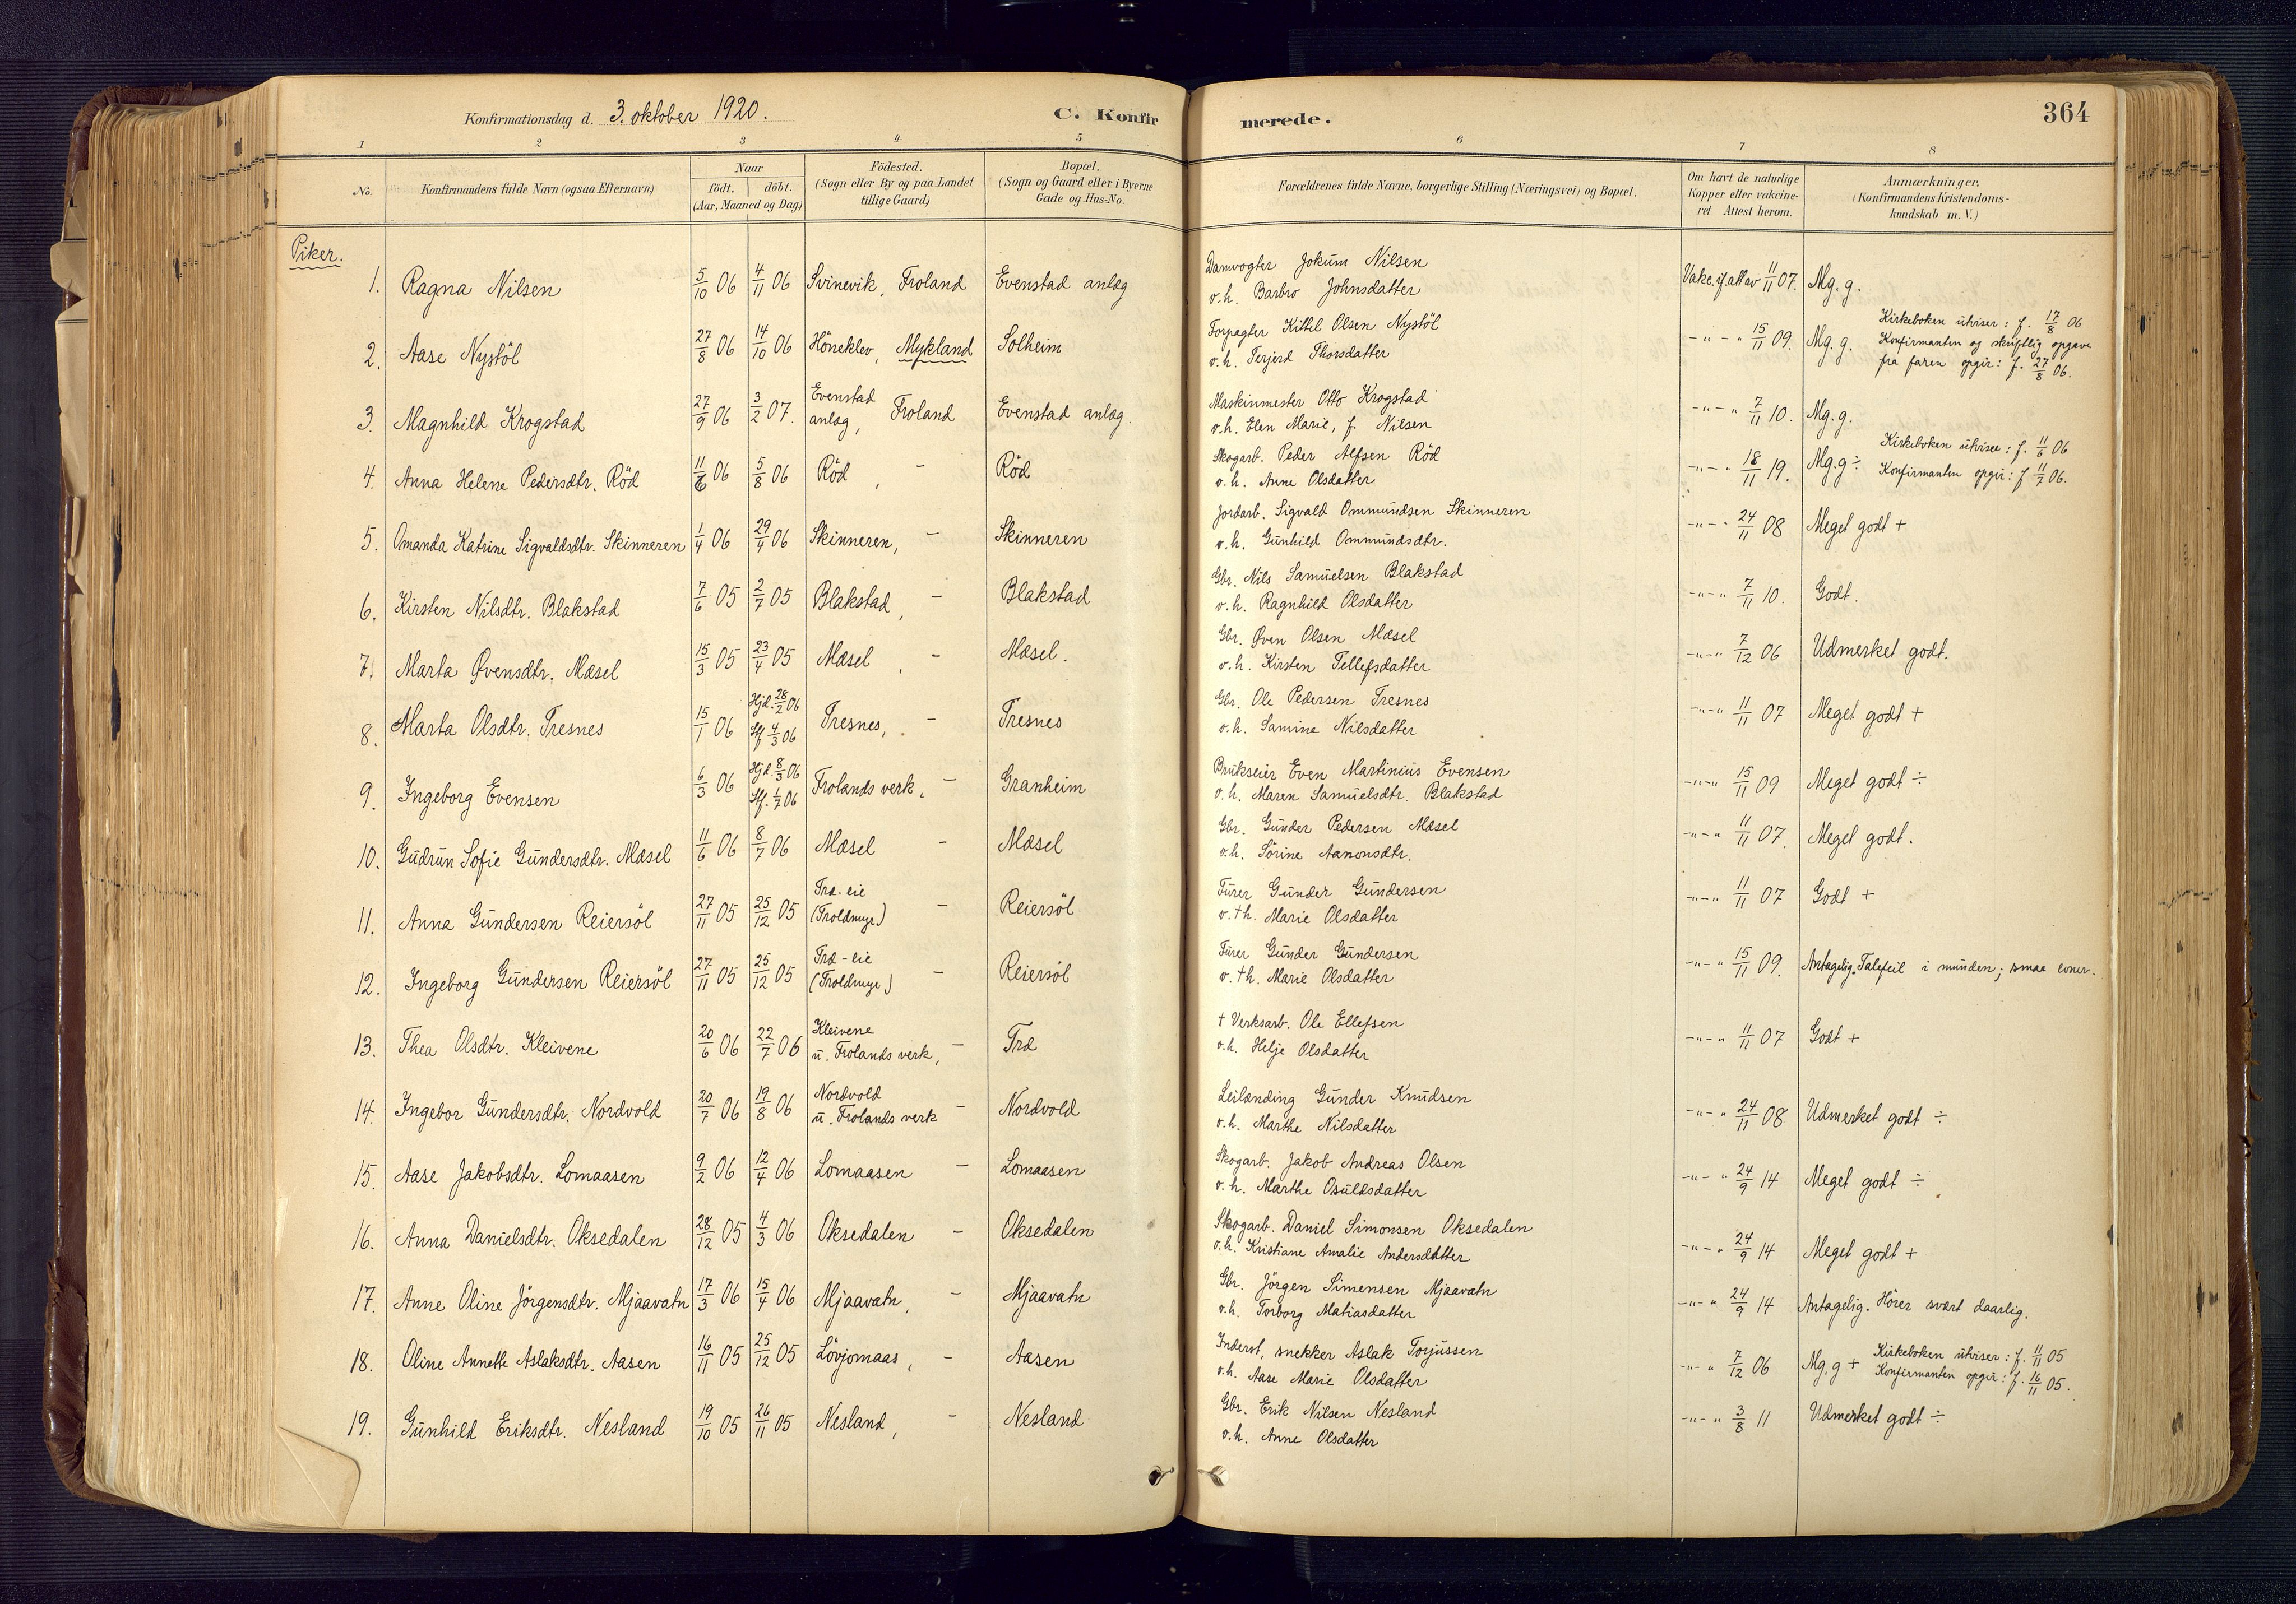 Konfirmationsdag d. 3. oktober 1920. C. Konfirmerede. 364
1 2 3 4 5 6 7 8
No. Konfirmandens fulde Navn (ogsaa Efternavn) Naar födt. döbt. (Aar, Maaned og Dag) Födested. (Sogn eller By og paa Landet tillige Gaard) Bopæl. (Sogn og Gaard eller i Byerne Gade og Hus-No. Forældrenes fulde Navne, borgerlige Stilling (Næringsvei) og Bopæl. Om havt de naturlige Kopper eller vakcineret Attest herom. Anmærkninger. (Konfirmandens Kristendomskundskab m. V.)
Piker.
1. Ragna Nilsen 5/10 06 4/11 06 Svinevik, Froland Evenstad anlæg Damvogter Jokum Nilsen
v.h. Barbro Johnsdatter Vakc. if. att av 11/11 07. Mg. g.
2. Aase Nystöl 27/8 06 14/10 06 Höneklev, Mykland Solheim Forpagter Kittil Olsen Nystöl
v.h. Terjerd Thorsdatter -"-" 15/11 09. Mg. g. Kirkeboken utviser: f. 17/8 06
Konfirmanten og skriftlig opgave
fra faren opgir: f. 27/8 06.
3. Magnhild Krogstad 27/9 06 3/2 07. Evenstad anlæg, Froland Evenstad anlæg. Maskinmester Otto Krogstad
v.h. Elen Marie, f. Nilsen -"-" 7/11 10. Mg. g.
4. Anna Helene Pedersdtr. Röd 11/6 06 5/8 06 Röd, - Röd Skogarb. Peder Alfsen Röd
v.h. Anne Olsdatter -"-" 18/11 19. Mg. g ÷ Kirkeboken utviser: f. 11/6 06
Konfirmanten opgir: f 11/7 06.
5. Omanda Katrine Sigvaldsdtr. Skinneren 1/4 06 29/4 06 Skinneren, - Skinneren Jordarb. Sigvald Ommundsen Skinneren
v.h. Gunhild Ommundsdtr. -"-" 24/11 08 Meget godt +
6. Kirsten Nilsdtr. Blakstad 7/6 05 2/7 05 Blakstad, - Blakstad Gbr. Nils Samuelsen Blakstad
v.h. Ragnhild Olsdatter -"-" 7/11 10. Godt.
7. Marta Øvensdtr. Mæsel 15/3 05 23/4 05 Mæsel, - Mæsel. Gbr. Øven Olsen Mæsel
v.h. Kirsten Tellefsdatter -"-" 7/12 06 Udmerket godt.
8. Marta Olsdtr. Tresnes 15/1 06 Hjd. 28/2 06 Stf 4/3 06 Tresnes, - Tresnes Gbr. Ole Pedersen Tresnes
v.h. Samine Nilsdatter -"-" 11/11 07 Meget godt +
9. Ingeborg Evensen 6/3 06 Hjd. 8/3 06 Stf. 1/7 06 Frolands verk, - Granheim Brukseier Even Martinius Evensen
v.h. Maren Samuelsdtr. Blakstad -"-" 15/11 09 Meget godt ÷
10. Gudrun Sofie Gundersdtr. Mæsel 11/6 06 8/7 06 Mæsel - Mæsel Gbr. Gunder Pedersen Mæsel
v.h. Sörine Aanonsdtr. -"-" 11/11 07. Meget godt.
11. Anna Gundersen Reiersöl 27/11 05 25/12 05 Træ-eie (Troldmyr) - Reiersöl Furer Gunder Gundersen
v. †h. Marie Olsdatter -"-" 11/11 07 Godt +
12. Ingeborg Gundersen Reiersöl 27/11 05 25/12 05 Træ-eie (Troldmyr) - Reiersöl Furer Gunder Gundersen
v. †h. Marie Olsdatter -"-" 15/11 09. Antagelig. Talefeil i munden; smaa evner.
13. Thea Olsdtr. Kleivene 20/6 06 22/7 06 Kleivene u. Frolands verk, - Træ † Verksarb. Ole Ellefsen
v.h. Helje Olsdatter -"-" 11/11 07 Godt +
14. Ingebor Gundersdtr. Nordvold 20/7 06 19/8 06 Nordvold u. Frolands verk - Nordvold Leilænding Gunder Knudsen
v.h. Marthe Nilsdatter -"-" 24/11 08 Udmerket godt ÷
15. Aase Jakobsdtr. Lomaasen 9/2 06 12/4 06 Lomaasen - Lomaasen Skogarb. Jakob Andreas Olsen
v.h. Marthe Osuldsdatter -"-" 24/9 14 Meget godt ÷
16. Anna Danielsdtr. Oksedalen 28/12 05 4/3 06 Oksedalen - Oksedalen Skogarb. Daniel Simonsen Oksedalen
v.h. Kristiane Amalie Andersdatter -"-" 24/9 14 Meget godt +
17. Anne Oline Jörgensdtr. Mjaavatn 17/3 06 15/4 06 Mjaavatn, - Mjaavatn Gbr. Jörgen Simensen Mjaavatn
v.h. Torborg Matiasdatter -"-" 24/9 14 Antagelig. Hörer svært daarlig.
18. Oline Annette Aslaksdtr. Aasen 16/11 05 25/12 05 Lövjomaas, - Aasen Inderst, snekker Aslak Torjussen
v.h. Aase Marie Olsdatter -"-" 7/12 06 Mg. g + Kirkeboken utviser: f. 11/11 05
Konfirmanten opgir: f. 16/11 05.
19. Gunhild Eriksdtr. Nesland 19/10 05 26/11 05 Nesland, - Nesland Gbr. Erik Nilsen Nesland
v.h. Anne Olsdatter -"-" 3/8 11 Udmerket godt ÷